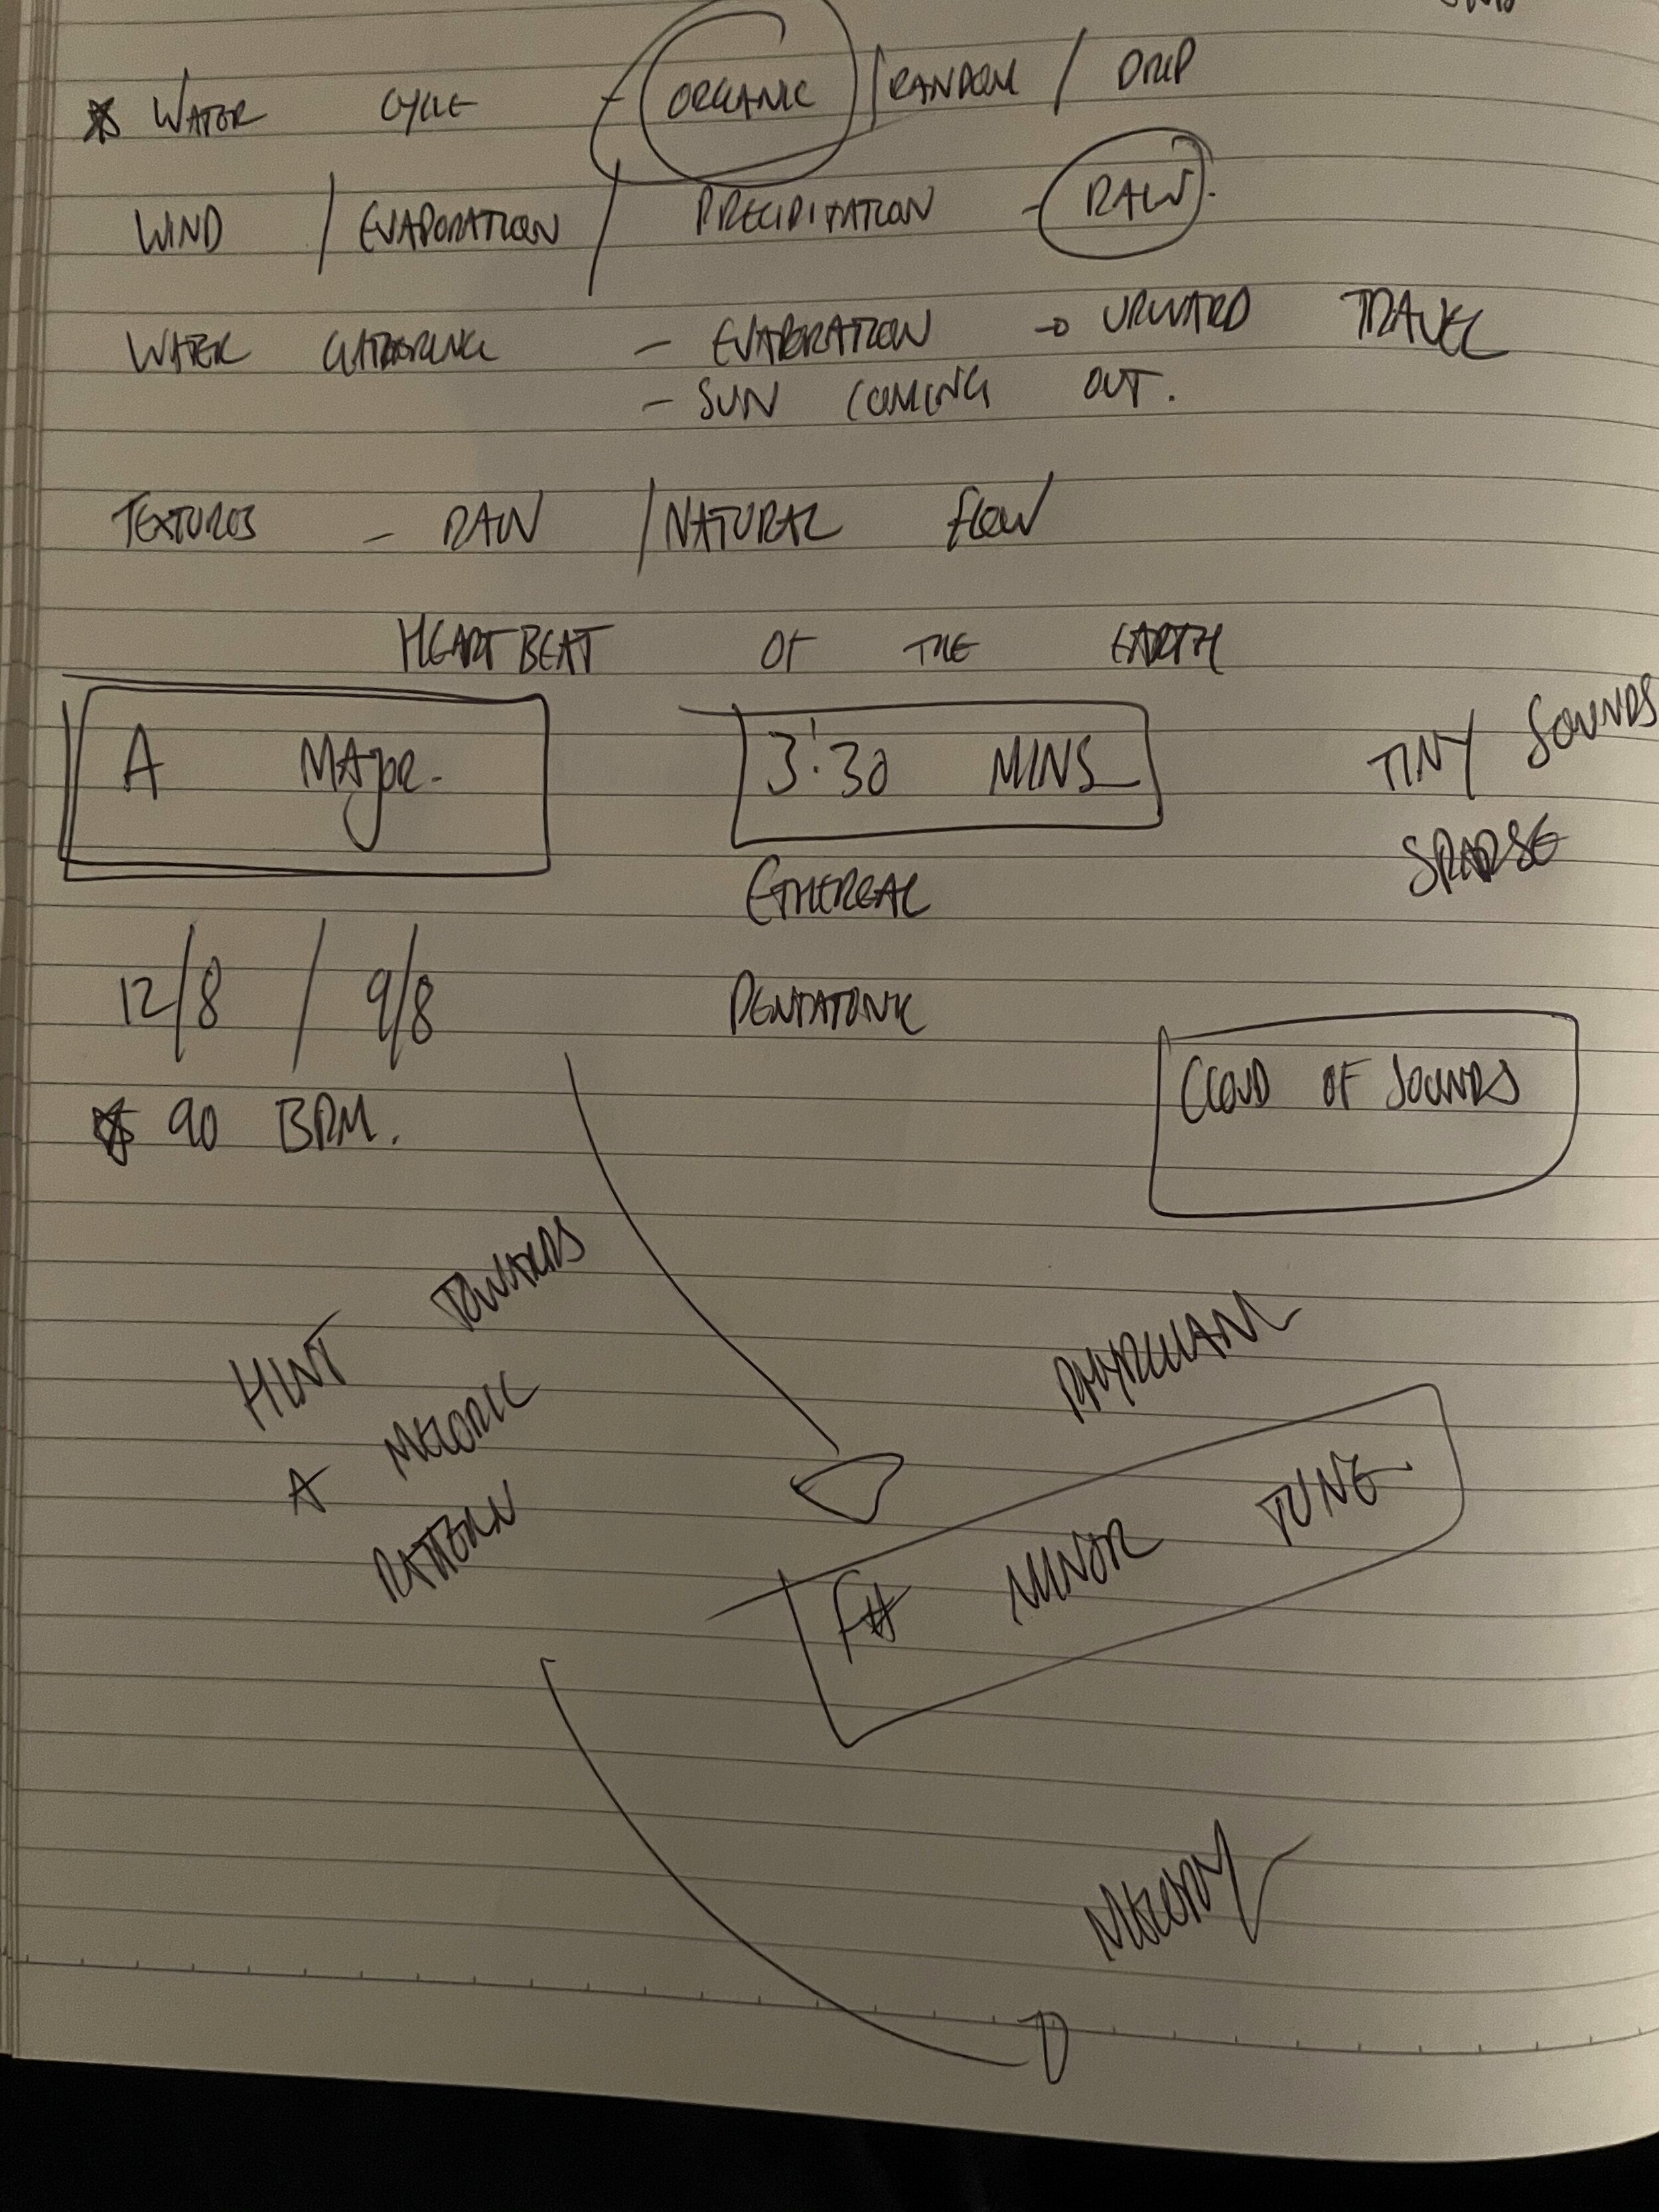 * WATER CYCLE - ORGANIC / RANDOM / DRIP
WIND / EVAPORATION / PRECIPITATION - RAW.
WATER GATHERING - EVAPORATION → UPWARD TRAVEL
- SUN COMING OUT.
TEXTURES - RAW / NATURAL FLOW
HEARTBEAT OF THE EARTH
A MAJOR.
3:30 MINS
TINY SOUNDS
SPARSE
ETHEREAL
12/8 / 9/8
PENTATONIC
CLOUD OF SOUNDS
* 90 BPM.
HINT TOWARDS
A MELODIC
PATTERN
F# MINOR TUNE
MELODY